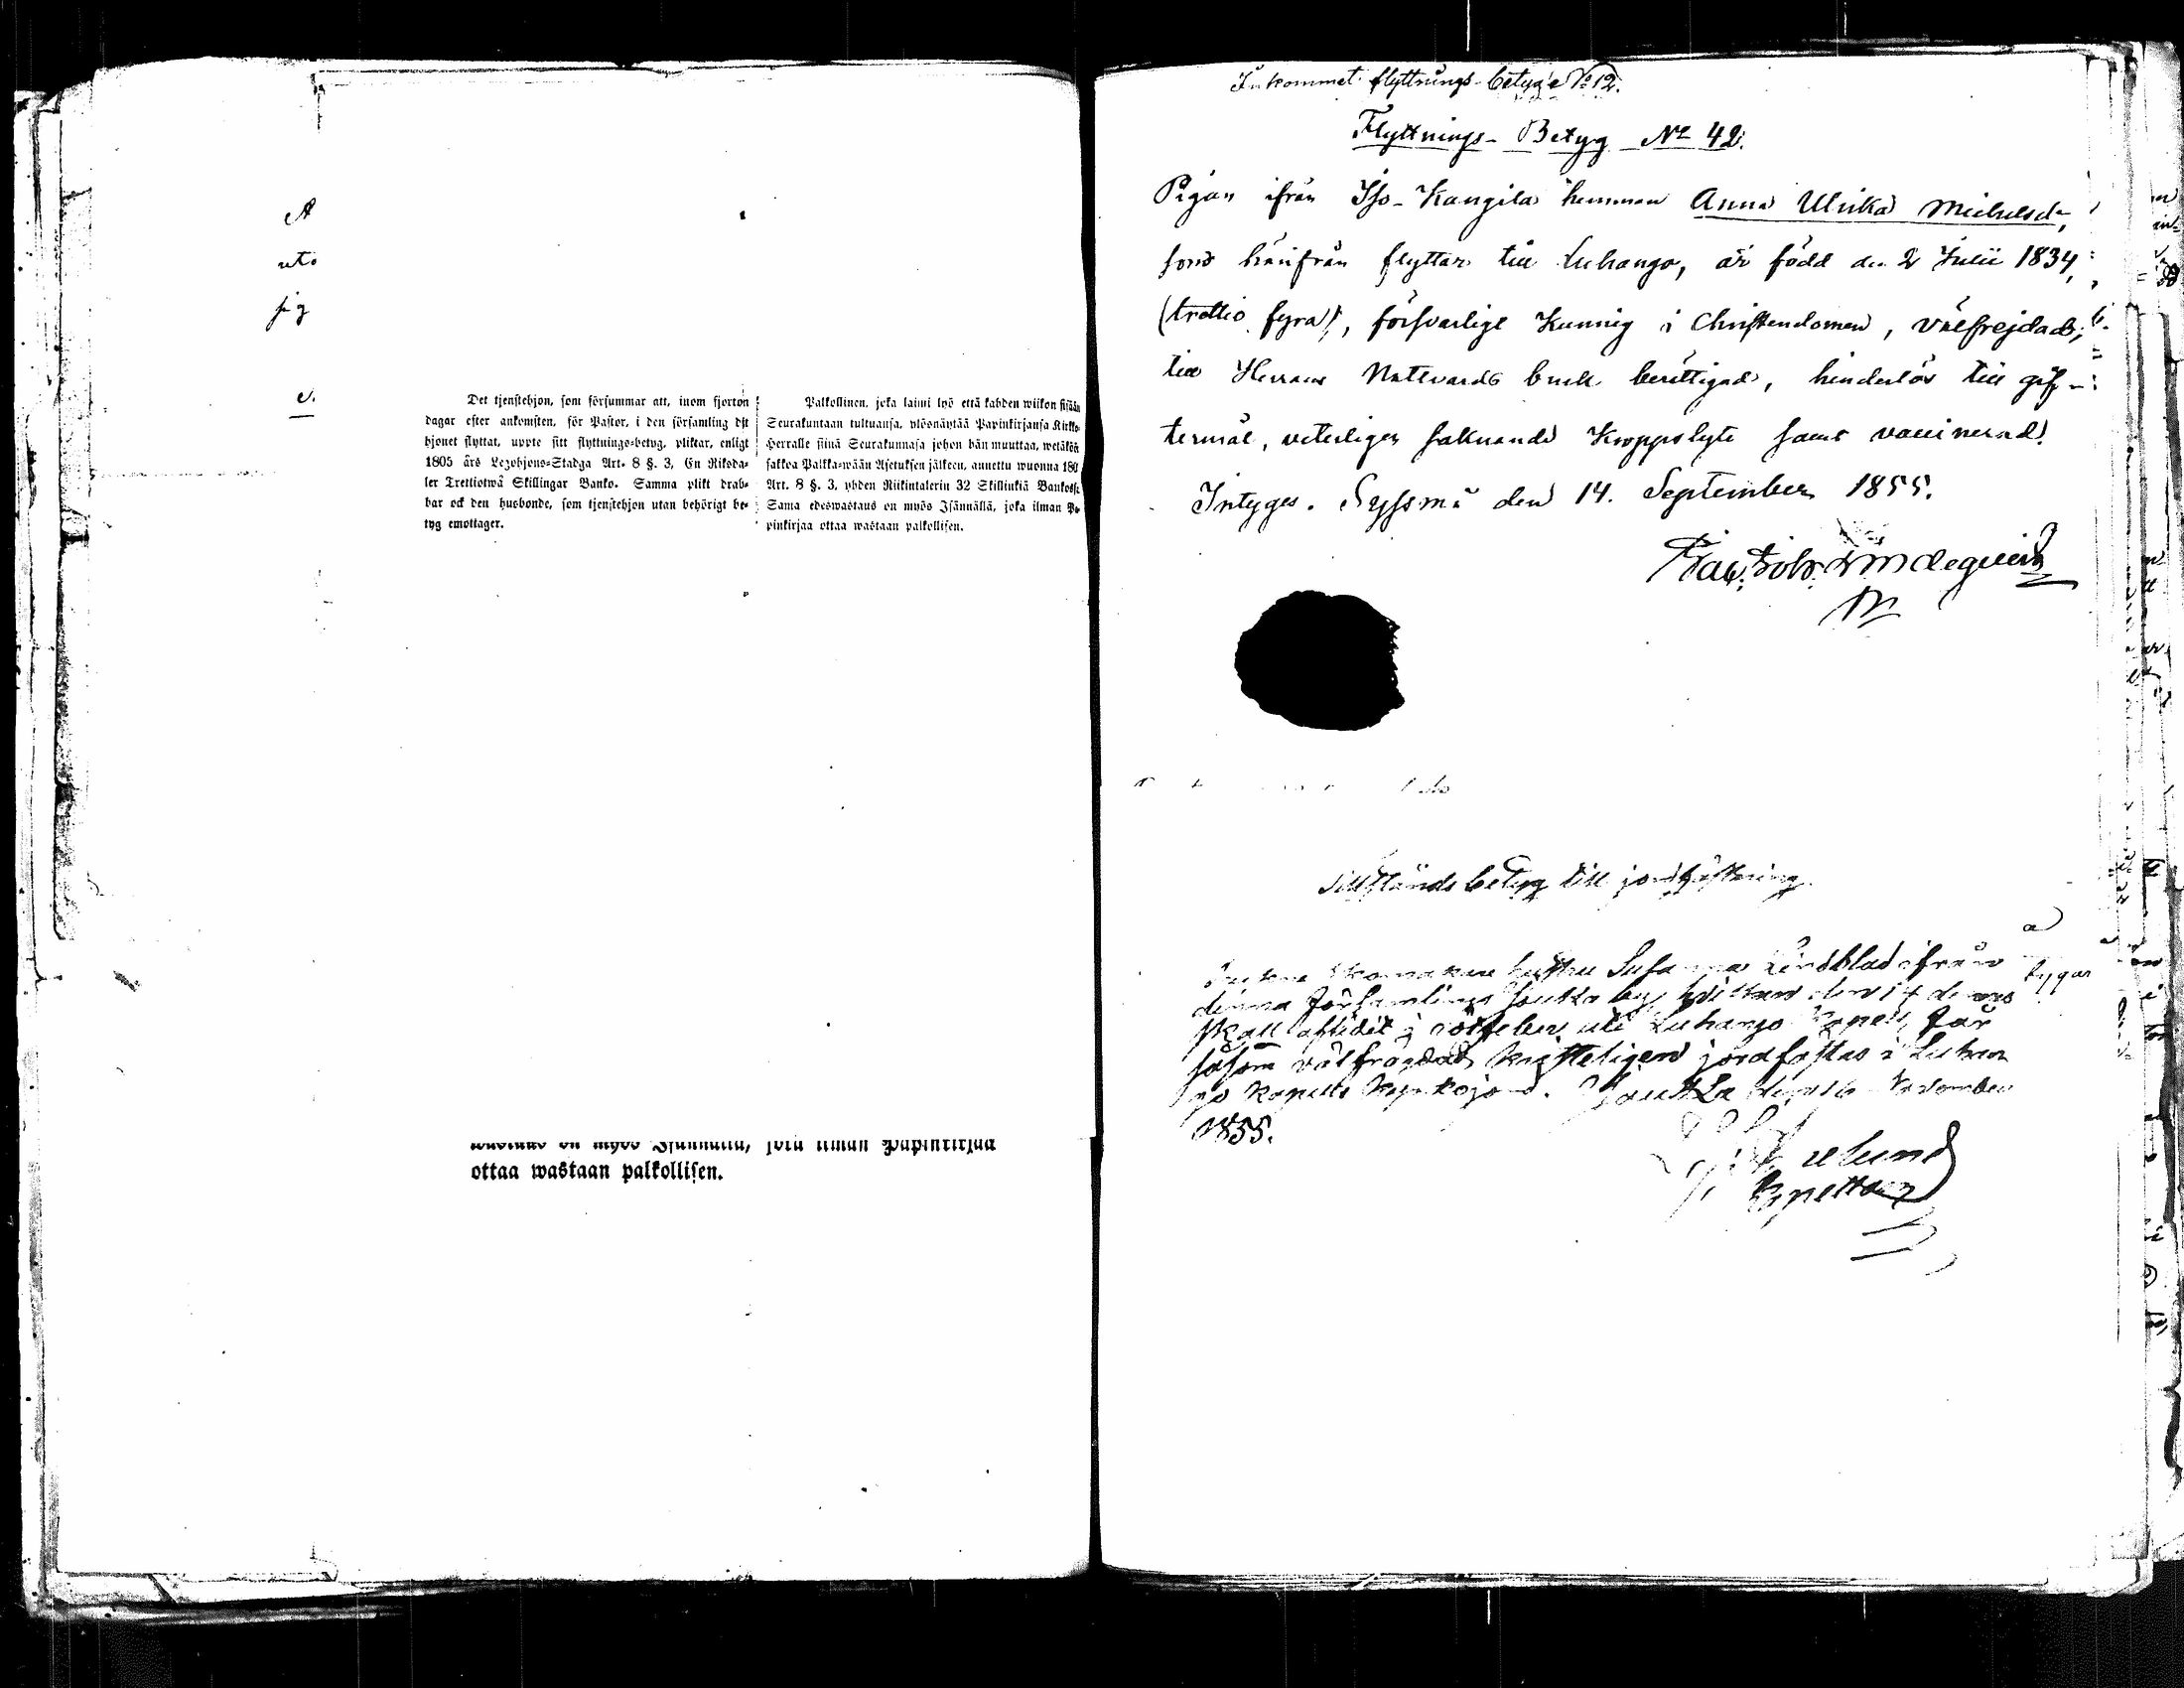 A
uti
sig
Det tjenstehjon, som försummar att, inom fjorton
dagar efter ankomsten, för Pastor, i den församling dit
hjonet flyttat, uppte sitt flyttnings-betyg, pliktar, enligt
1805 års Legohjons-Stadga Art. 8 §. 3, En Riksda-
ler Trettiotwå Skillingar Banko. Samma plikt drab-
bar ock den husbonde, som tjenstehjon utan behörigt be-
tyg emottager.
Palkollinen, joka laimi lyö että kahden wiikon sisään
Seurakuntaan tultuansa, ylösnäytää Papinkirjansa Kirkko-
Herralle siinä Seurakunnasa johon hän muuttaa, wetäköön
sakkoa Palkka-wään Asetuksen jälkeen, annettu wuonna 180
Art. 8 §. 3, yhden Riikintalerin 32 Skillinkiä Bankossa
Sama edeswastaus on myös Isännällä, joka ilman Pa-
pinkirjaa ottaa wastaan palkollisen.
wastaus on myös Isännällä, joka ilman Papinkirjaa
ottaa wastaan palkollisen.
Inkommet flyttnings-betyg No 12.
Flyttnings-Betyg No 42.
Pigan ifrån Iso-Kangila hemman Anna Ulrika Michelsdr,
som härifrån flyttar till Luhango, är född den 2 Julii 1834,
(trettio fyra), försvarligt kunnig i Christendomen, välfrejdad,
till Herrans Nattvards bruk berättigad, hinderlös till gif-
termål, veterligen saknande kroppslyte samt vaccinerad.
Intygas. Sysmä den 14. September 1855.
Lindeqvist
Tillstånds betyg till jordfästning.
hustru Susanna Lindblad ifrån
denna Församlings Joutsa by, hvilken den 14 dennes
skall aflidit i rötfeber uti Luhango Kapell, får
såsom välfrägdad kristeligen jordfästas i Luhan
go kapells kyrkojord. Joutsa den 16 November
1855.